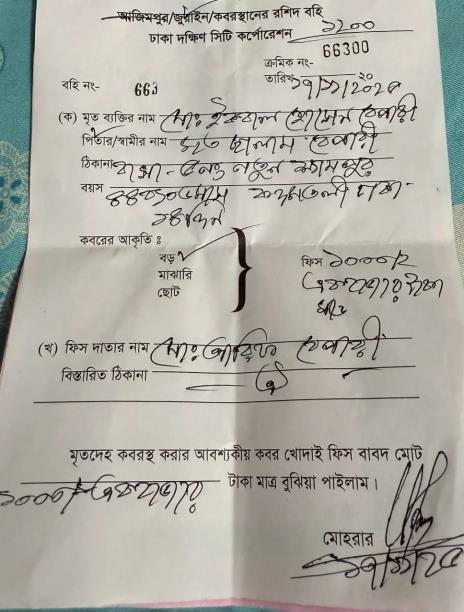 আজিমপুর/জুরাইন/কবরস্থানের রশিদ বহি
ঢাকা দক্ষিণ সিটি কর্পোরেশন ১২০০
ক্রমিক নং- 66300
বহি নং- 663 তারিখ
(ক) মৃত ব্যক্তির নাম মোঃ ইকবাল হোসেন বেপারী
পিতার/স্বামীর নাম মৃত ছালাম বেপারী
ঠিকানা বাসা - নতুন
বয়স
কবরের আকৃতি ঃ
বড় ✓
মাঝারি
ছোট
ফিস ১০০০/২
এক হাজার টাকা
মাত্র
(খ) ফিস দাতার নাম মোঃ আরিফ বেপারী
বিস্তারিত ঠিকানা ঐ
মৃতদেহ কবরস্থ করার আবশ্যকীয় কবর খোদাই ফিস বাবদ মোট
১০০০/= এক হাজার টাকা মাত্র বুঝিয়া পাইলাম।
মোহরার